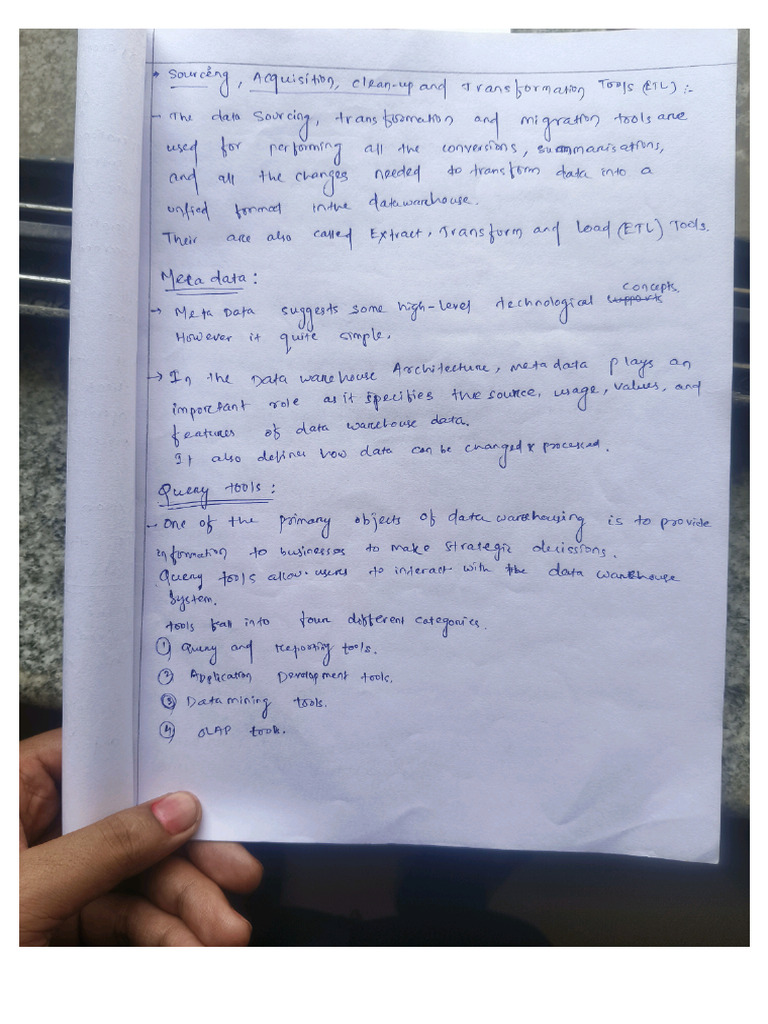 • Sourcing, Acquisition, Clean-up and Transformation Tools (ETL):-
- The data sourcing, transformation and migration tools are
used for performing all the conversions, summarisations,
and all the changes needed to transform data into a
unified formed in the datawarehouse.
Their are also called Extract, Transform and Load (ETL) Tools.
Meta data:
→ Meta Data suggests some high-level technological supports concepts.
However it quite simple.
→ In the Data warehouse Architecture, meta data plays an
important role as it specifies the source, usage, values, and
features of data warehouse data.
It also defines how data can be changed & processed.
Query tools:
- One of the primary objects of data warehousing is to provide
information to businesses to make strategic decissions.
Query tools allow users to interact with the data warehouse
system.
tools fall into four different categories.
① Query and reporting tools.
② Application Development tools.
③ Data mining tools.
④ OLAP tools.